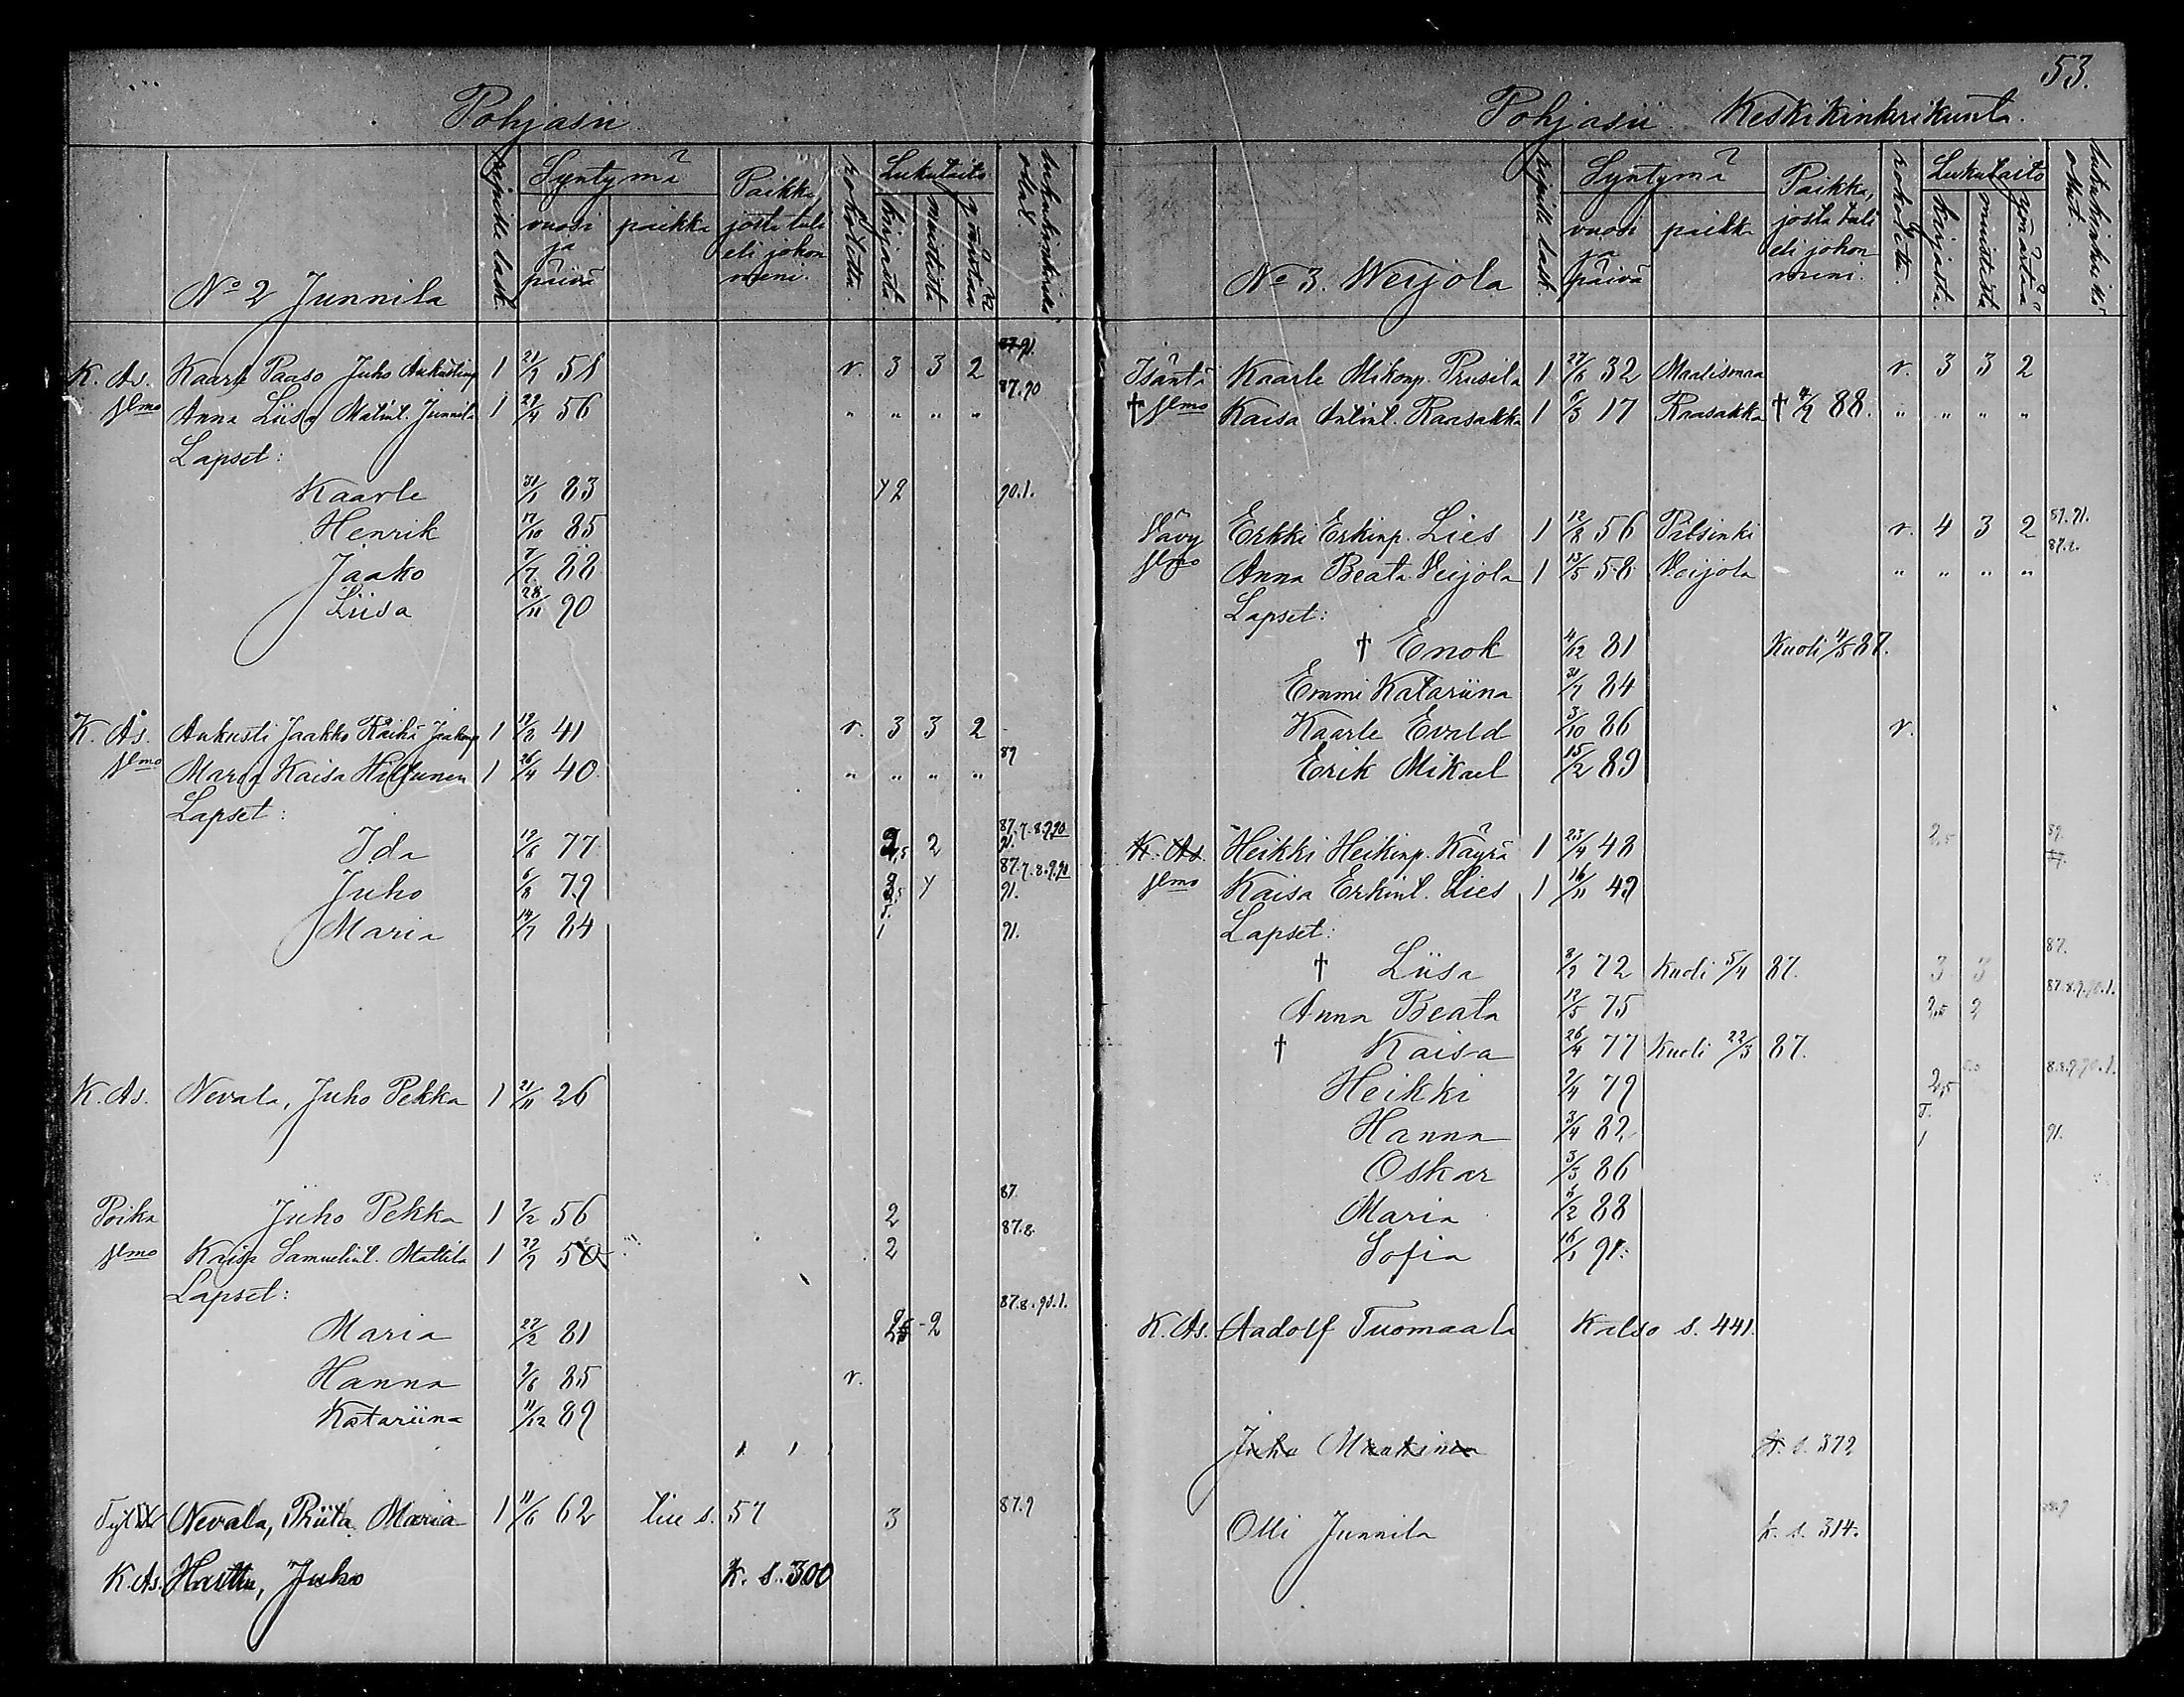 53.
Pohjasii
ripille lask.
Syntymä
vuosi ja päivä
paikka
Paikka, josta tuli eli johon meni.
rokotettu.
Lukutaito
kirjasta.
muistista
ymärtää
lukukinkerillä ollut.
No 2 Junnila
K. As. Kaarle Paaso Juho Aukustinp 1 21/7 58 r. 3 3 2 87.91.
Anna Liisa Matint. Junnila 1 29/4 56 " " " " 87.90
Lapset:
Kaarle 31/1 83 90.1.
Henrik 17/10 85
Jaako 7/7 88
Liisa 28/11 90
K. As. Aukusti Jaakko Räihä Jaakonp 1 19/2 41 r. 3 3 2
Maria Kaisa Hiltunen 1 26/4 40 " " " " 89
Lapset:
Ida 19/6 77 2,5 2 87.7.8.9.90 91.
Juho 6/8 79 87.7.8.9.90 91.
Maria 14/7 84 1 91.
K. As. Nevala, Juho Pekka 1 21/11 26
Poika Juho Pekka 1 7/2 56 2 87
Kaisa Samuelint. Mattila 1 22/7 50 2 87.8.
Lapset:
Maria 27/2 81 2,5 2 87.8.90.1.
Hanna 9/6 85 r.
Katariina 11/12 89
Nevala, Riita Maria 1 11/6 62 s. 57 3 87.9
K. As. Harttu, Juho k. s. 300
Pohjasii Keskikinkerikunta.
ripille lask.
Syntymä
vuosi ja päivä
paikka
Paikka, josta tuli eli johon meni.
rokotettu.
Lukutaito
kirjasta.
muistista
ymärtää
lukukinkerillä ollut.
No 3. Werjola
Isäntä Kaarle Mikonp. Prusila 1 27/8 32 Maalismaa r. 3 3 2
† Kaisa Antint. Raasakka 1 6/3 17 Raasakka † 4/7 88. " " " "
Vävy Erkki Erkinp. Lies 1 12/8 56 Pitsinki r. 4 3 2
Anna Beata Veijola 1 13/5 58 Veijola " " " "
Lapset:
† Enok 4/12 81 Kuoli 4/5 87.
Emmi Katariina 31/7 84
Kaarle Evald 3/10 86 r.
Erik Mikael 15/2 89
K. As. Heikki Heikinp. Käyrä 1 23/4 48 2,5
Kaisa Erkint. Lies 1 16/11 49
Lapset:
† Liisa 8/2 72 Kuoli 5/4 87. 3 3 87.
Anna Beata 12/5 75 2,5 2 87.8.9.90.1.
† Kaisa 26/4 77 Kuoli 22/3 87.
Heikki 2/4 79 2,5 8.8.9.90.1.
Hanna 3/4 82 1 91.
Oskar 3/3 86
Maria 6/2 88
Sofia 16/1 91.
K. As. Aadolf Tuomaala Katso s. 441.
Juho Maatinen k. s. 372
Olli Junnila k. s. 314.